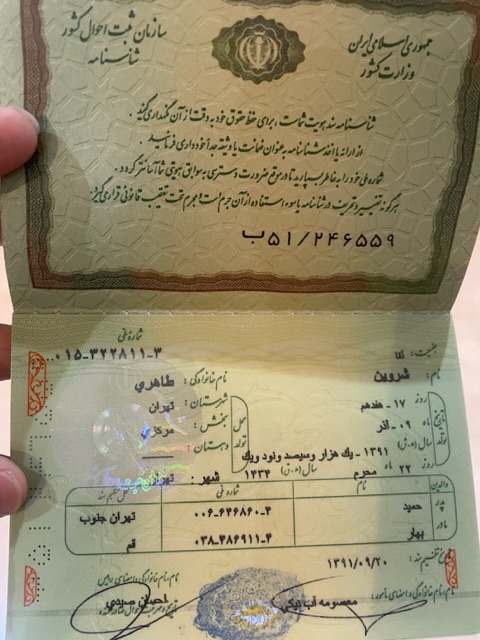 جمهوری اسلامی ایران
وزارت کشور
سازمان ثبت احوال کشور
شناسنامه
شناسنامه سند هویت شماست، برای حفظ حقوق خود به دقت از آن نگهداری کنید.
از ارائه یا اخذ شناسنامه به عنوان ضمانت یا وثیقه جداً خودداری فرمائید.
شماره ملی خود را به خاطر بسپارید تا در موقع ضرورت دسترسی به سوابق هویتی شما آسانتر گردد.
هرگونه تغییر و تحریف در شناسنامه یا سوء استفاده از آن جرم است و مجرم تحت تعقیب قانونی قرار می‌گیرد.
ب۵۱/۲۴۶۵۵۹
شماره ملی
۰۱۵-۳۲۲۸۱۱-۳
جنسیت: آقا
نام: شروین
نام خانوادگی: طاهری
تاریخ تولد
روز ۱۷ - هفدهم
ماه ۰۹ - آذر
سال (ه.ش) ۱۳۹۱ - یک هزار و سیصد و نود و یک
روز ۲۲ ماه محرم سال (ه.ق) ۱۴۳۴
محل تولد
شهرستان: تهران
بخش: مرکزی
دهستان:
شهر: تهران
والدین نام شماره ملی محل تنظیم سند
پدر حمید ۰۰۶-۶۴۶۸۶۰-۴ تهران جنوب
مادر بهار ۰۳۸-۴۸۶۹۱۱-۴ قم
تاریخ تنظیم سند: ۱۳۹۱/۰۹/۲۰
نام، نام خانوادگی و امضای مامور: معصومه آب نیکی
نام، نام خانوادگی و امضای رئیس